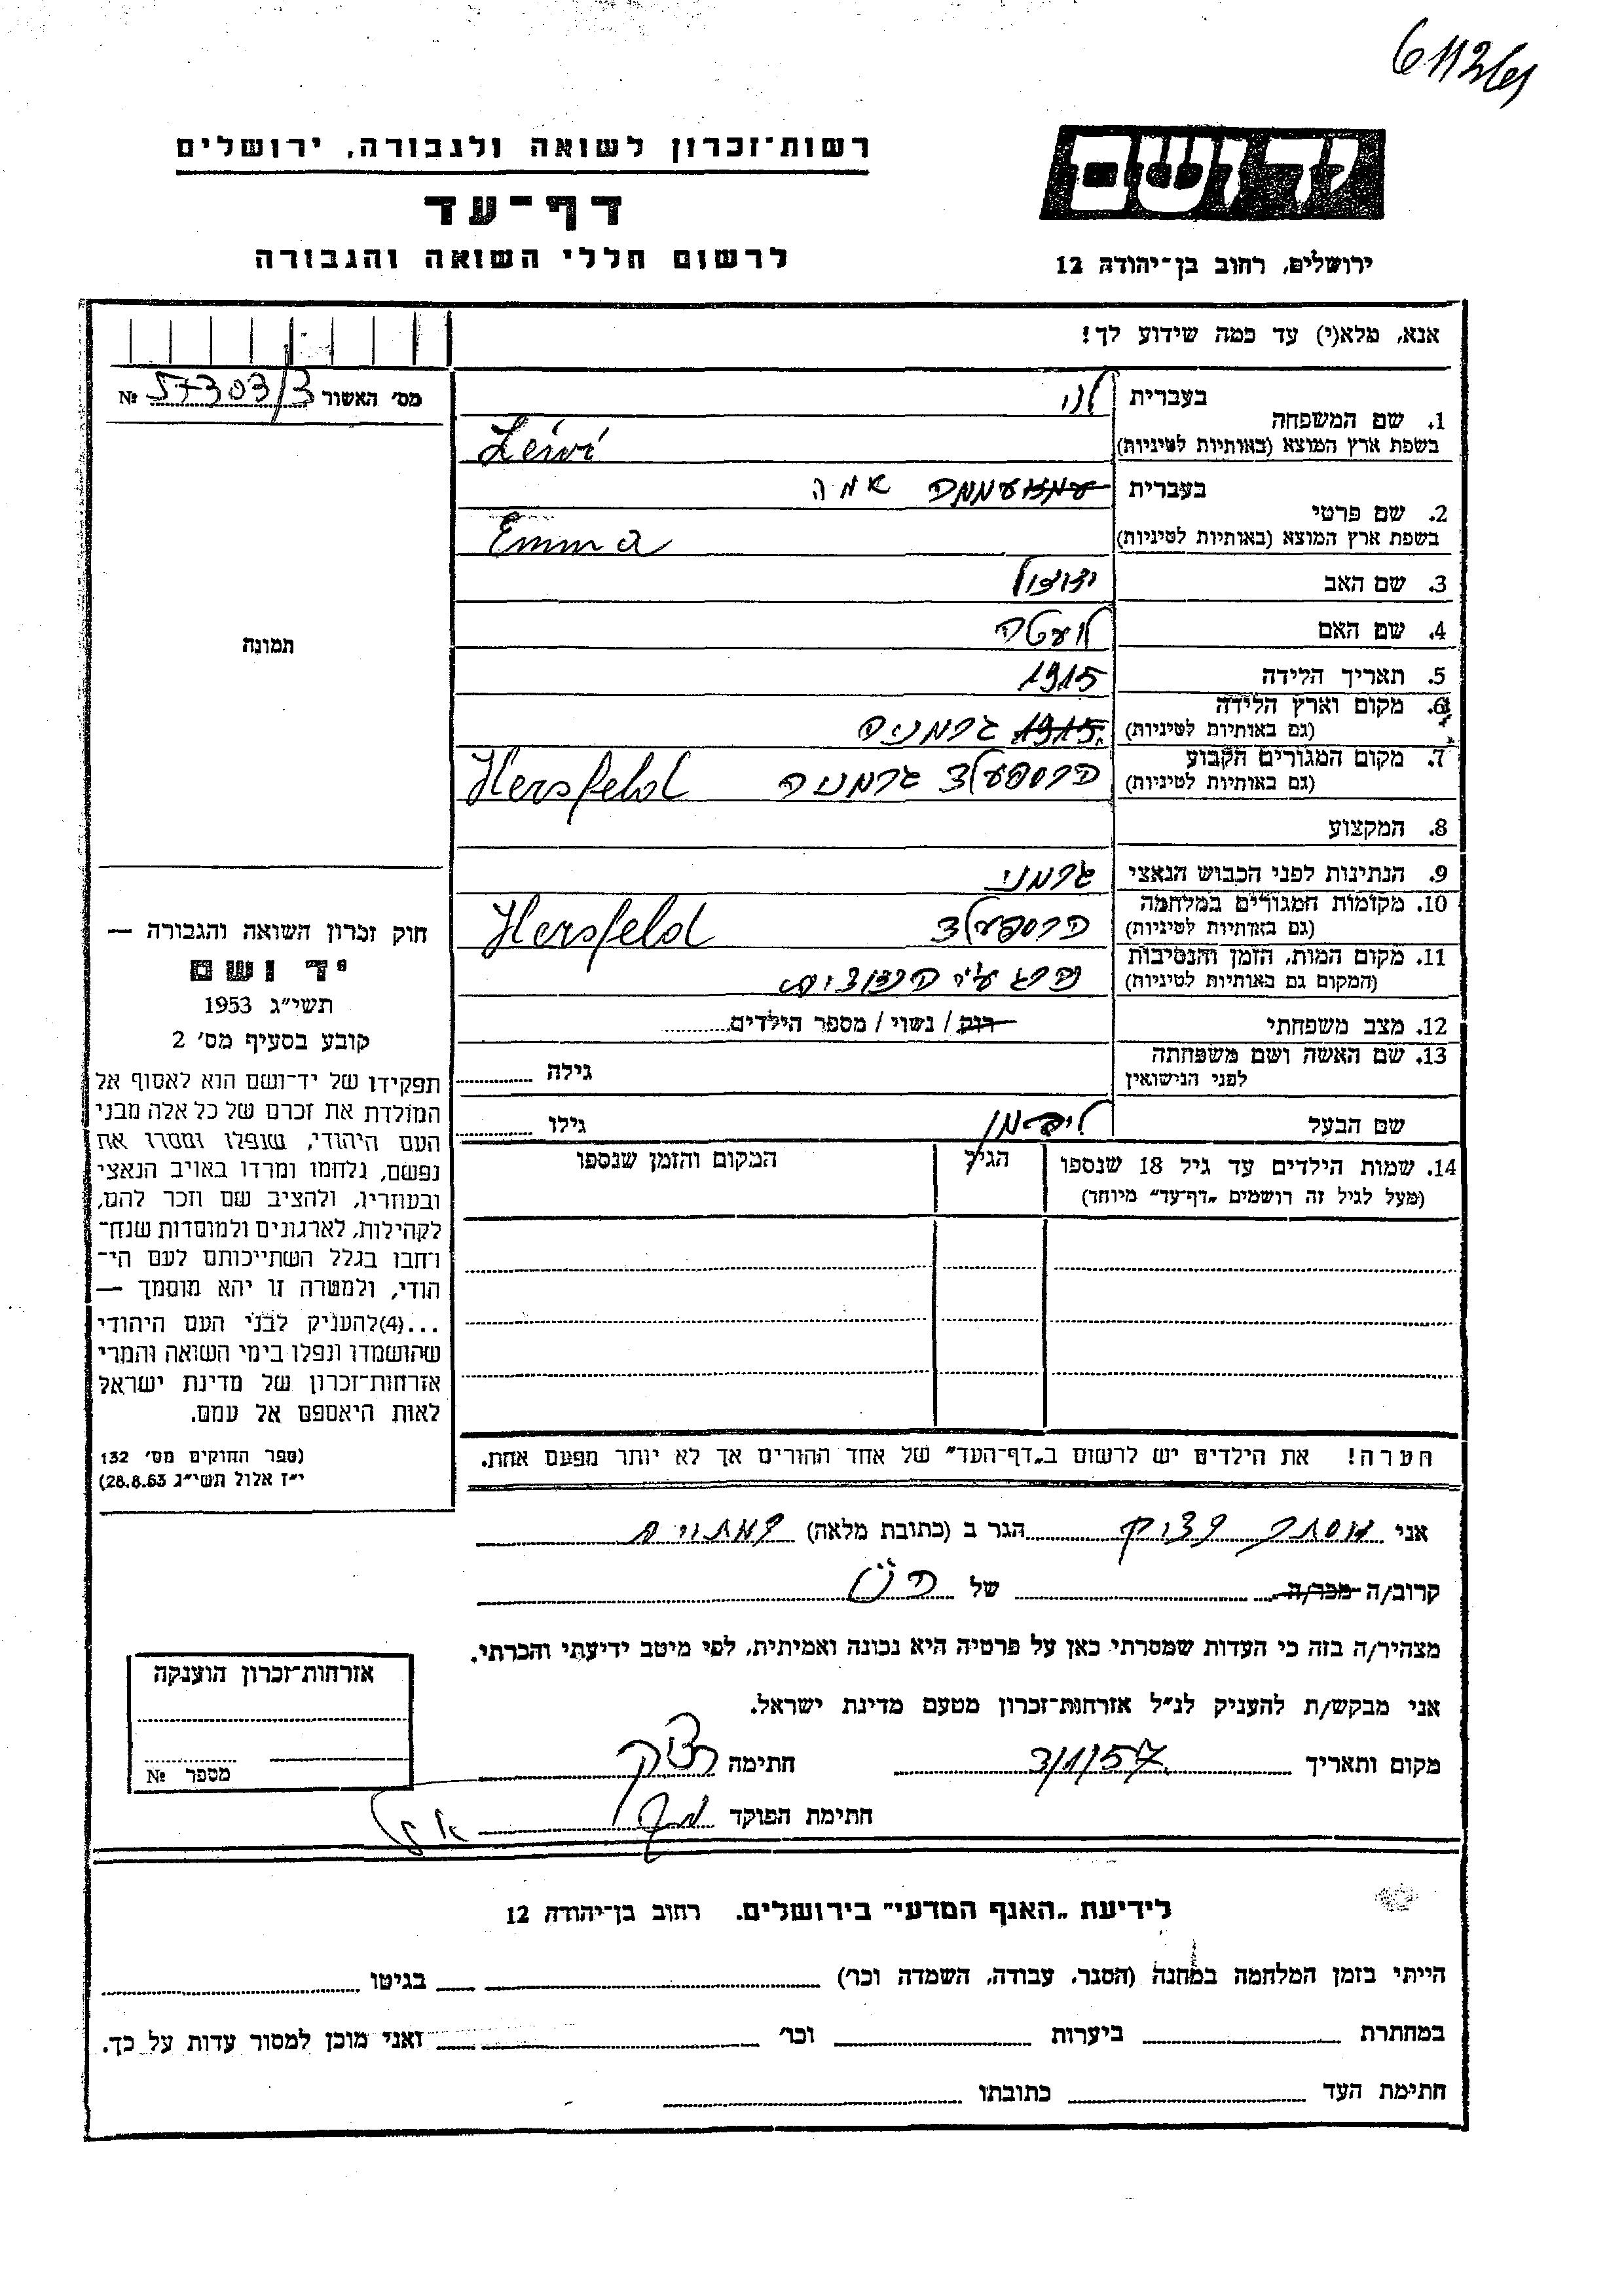 611261
רשות־זכרון לשואה ולגבורה, ירושלים
דף־עד
לרשום חללי השואה והגבורה
יד ושם
ירושלים, רחוב בן־יהודה 12
אנא, מלא(י) עד כמה שידוע לך!
מס׳ האשור 57303/3 №
תמונה
1. שם המשפחה
בעברית לוי
בשפת ארץ המוצא (באותיות לטיניות) Lewi
2. שם פרטי
בעברית אמה
בשפת ארץ המוצא (באותיות לטיניות) Emma
3. שם האב
4. שם האם
5. תאריך הלידה 1915
6. מקום וארץ הלידה
(גם באותיות לטיניות) 1915 גרמניה
7. מקום המגורים הקבוע
(גם באותיות לטיניות) הרספעלד גרמניה Hersfeld
8. המקצוע
9. הנתינות לפני הכבוש הנאצי גרמני
10. מקומות המגורים במלחמה
(גם באותיות לטיניות) הרספעלד Hersfeld
11. מקום המות, הזמן והנסיבות
(המקום גם באותיות לטיניות) ע״י הנאצים
12. מצב משפחתי רוק / נשוי / מספר הילדים
13. שם האשה ושם משפחתה
לפני הנישואין
גילה
שם הבעל ליפמן גילו
14. שמות הילדים עד גיל 18 שנספו
(מעל לגיל זה רושמים „דף־עד״ מיוחד)
הגיל
המקום והזמן שנספו
חוק זכרון השואה והגבורה —
יד ושם
תשי״ג 1953
קובע בסעיף מס׳ 2
תפקידו של יד־ושם הוא לאסוף אל
המולדת את זכרם של כל אלה מבני
העם היהודי, שנפלו ומסרו את
נפשם, נלחמו ומרדו באויב הנאצי
ובעוזריו, ולהציב שם וזכר להם,
לקהילות, לארגונים ולמוסדות שנח־
רבו בגלל השתייכותם לעם הי־
הודי, ולמטרה זו יהא מוסמך —
...(4)להעניק לבני העם היהודי
שהושמדו ונפלו בימי השואה והמרי
אזרחות־זכרון של מדינת ישראל
לאות היאספם אל עמם.
(ספר החוקים מס׳ 132
י״ז אלול תשי״ג 28.8.53)
הערה! את הילדים יש לרשום ב„דף־העד״ של אחד ההורים אך לא יותר מפעם אחת.
אני אסתר הגר ב (כתובת מלאה)
קרוב/ה מכר/ה של הנ״ל
מצהיר/ה בזה כי העדות שמסרתי כאן על פרטיה היא נכונה ואמיתית, לפי מיטב ידיעתי והכרתי.
אני מבקש/ת להעניק לנ״ל אזרחות־זכרון מטעם מדינת ישראל.
מקום ותאריך 3/1/57 חתימה
חתימת הפוקד
אזרחות־זכרון הוענקה
מספר №
לידיעת „האגף המדעי״ בירושלים. רחוב בן־יהודה 12
הייתי בזמן המלחמה במחנה (הסגר, עבודה, השמדה וכו׳) בגיטו
במחתרת ביערות וכו׳ ואני מוכן למסור עדות על כך.
חתימת העד כתובתו